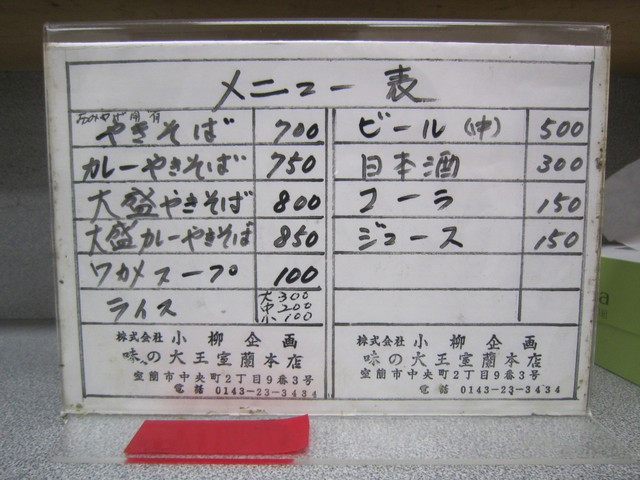 メニュー表
やきそば 700
カレーやきそば 750
大盛やきそば 800
大盛カレーやきそば 850
ワカメスープ 100
ライス 大300
中200
小100
ビール(中) 500
日本酒 300
コーラ 150
ジュース 150
株式会社 小柳企画
味の大王室蘭本店
室蘭市中央町2丁目9番3号
電話 0143-23-3434
株式会社 小柳企画
味の大王室蘭本店
室蘭市中央町2丁目9番3号
電話 0143-23-3434